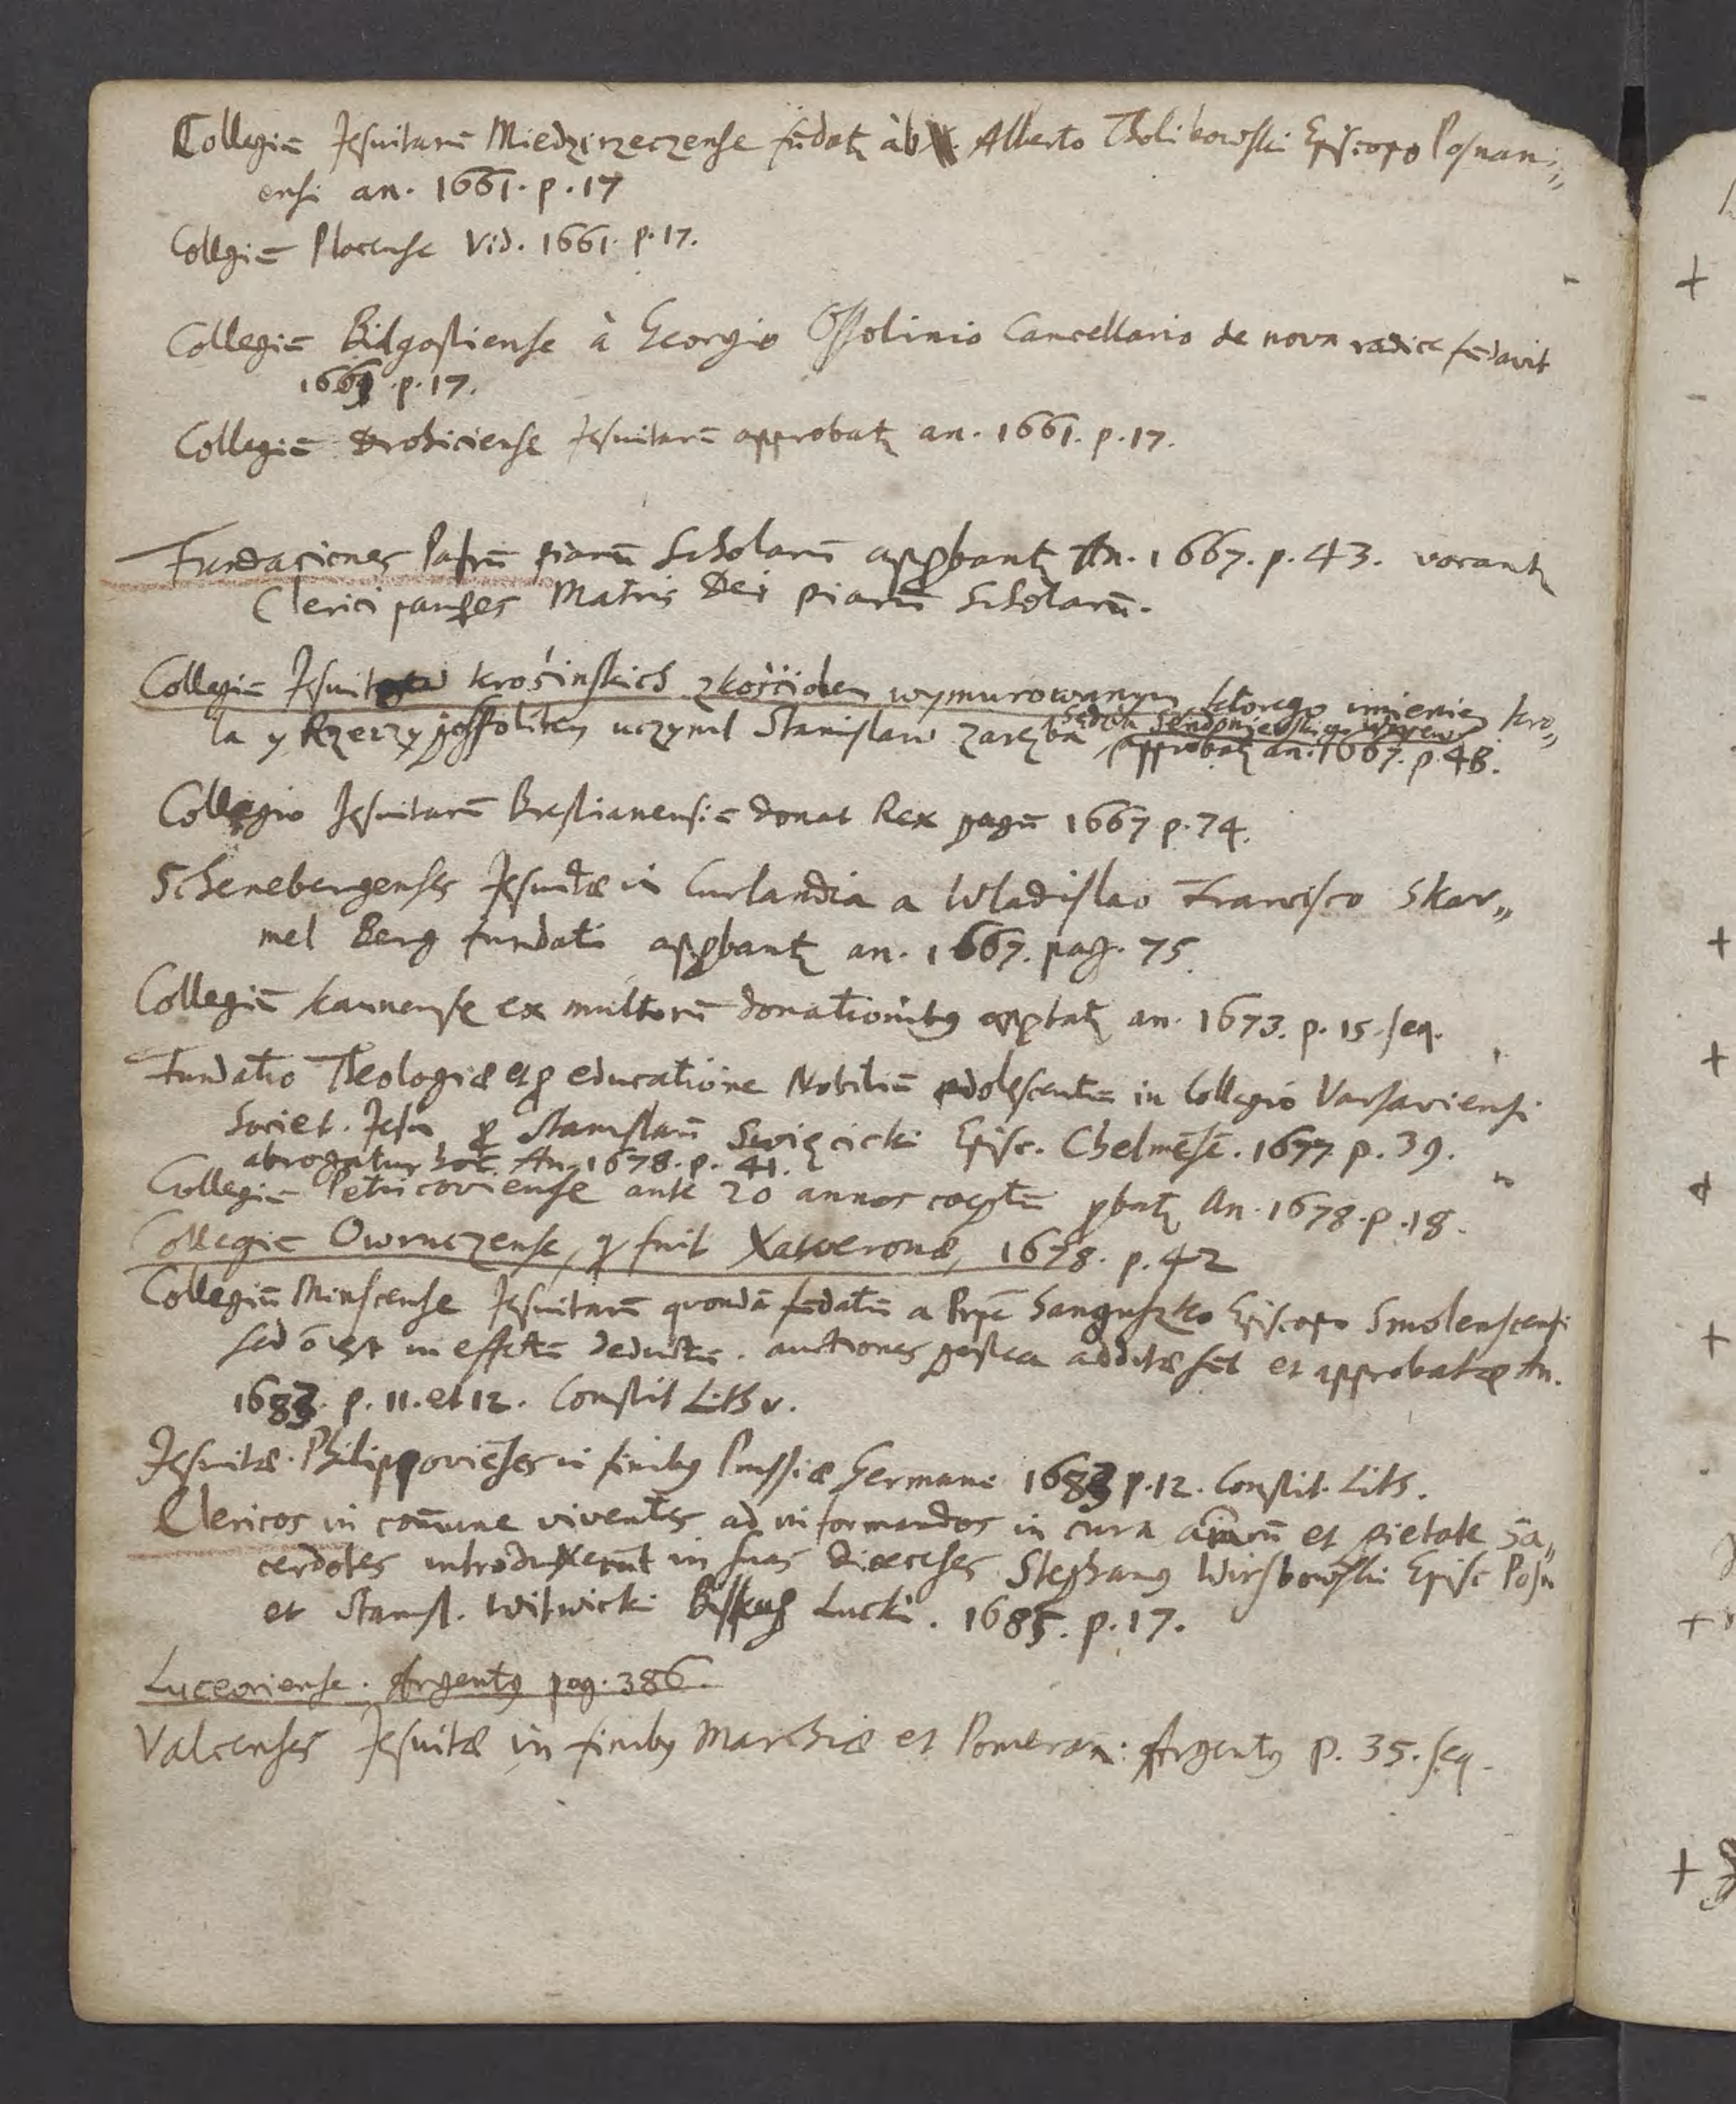 Collegiū Jesuitarū Miedzirzeczense fūdatꝫ ab Alberto Tholibowski Episcopo Posnani„
ensi an. 1661. p. 17
Collegiū Plocense Vid. 1661. p. 17.
Collegiū Bidgostiense à Georgio Ossolinio Cancellario de nova radice fūdavit
1661 p. 17.
Collegiū Drohiciense Jesuitarū approbatꝫ an. 1661. p. 17.
Fundaciones Patrū piarū Scholarū appbantꝫ An. 1667. p. 43. vocantꝫ
Clerici paupes Matris Dei piarū Scholarū.
Collegiū Jesuitow krośinskich z kościołem wymurowanym, ktorego imieniem kro„
la y Rzeczyposspolitey uczynil Stanislaw Zaręba
approbatꝫ an. 1667. p. 48.
Collegio Jesuitarū Brestianensiū donat Rex pagū 1667 p. 74.
Schenebergenses Jesuitæ in Curlandia a Wladislao Francisco Skar„
mel Berg fundati appbantꝫ an. 1667. pag. 75.
Collegiū kaunense ex multorū donationibꝰ appbatꝫ an. 1673. p. 15. seq.
Fundatio Theologiæ et p educatione Nobiliū adolescentū in Collegio Varsaviensi
Societ. Jesu p Stanislaū Swięcicki Episc. Chelmēsē. 1677 p. 39.
abrogatur hoc An. 1678. p. 41.
Collegiū Petricoviense ante 20 annos coeptū pbatꝫ An. 1678. p. 18.
Collegiū Owruczense, q fuit Xaweronæ, 1678. p. 42
Collegiū Minscense Jesuitarū quondā fūdatū a Hieronimo Sanguszko Episcopo Smolenscensi
sed ō est in effectū deductū. auctiones postea additæ sūt et approbatæ An.
1683. p. 11. et 12. Constit Lith v.
Jesuitæ Philippoviēses in finibꝰ Prussiæ Germani 1683 p. 12. Constit. Lith.
Clericos in com̄une viventes ad informandos in cura aīarū et pietate Sa„
cerdotes introduxerūt in suas diœceses Stephanꝰ Wirsbowski Episc Posn
et Stanisl. Witwicki Biskup Lucki. 1685. p. 17.
Luceoriense. Argentꝰ pag. 386.
Valcenses Jesuitæ in finibꝰ Marchiæ et Pomeran: Argentꝰ p. 35. seq.